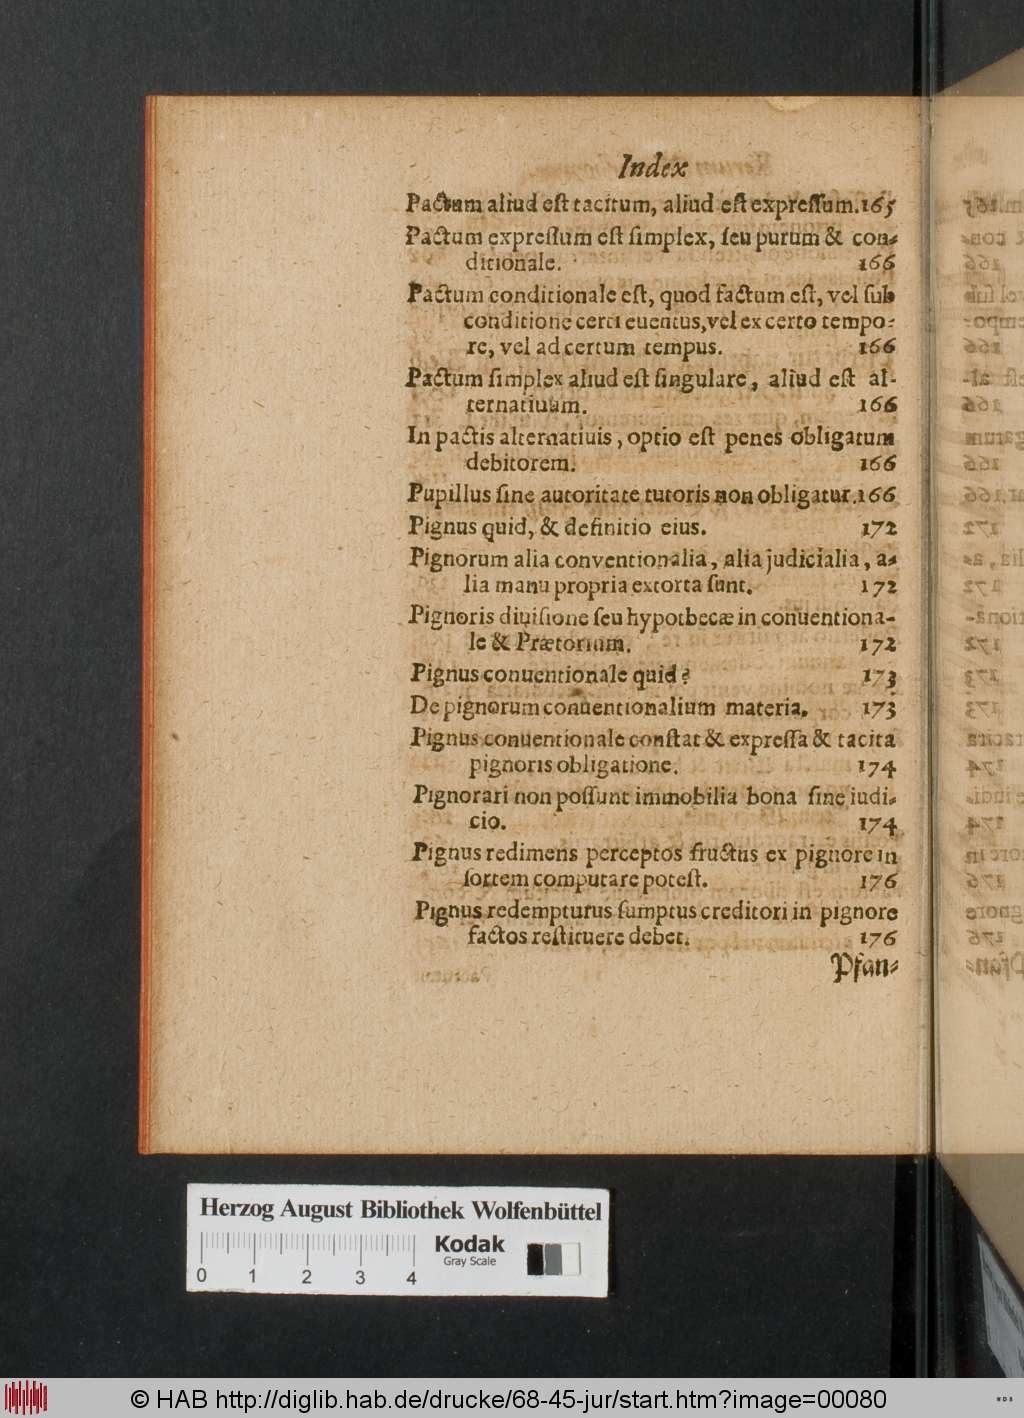 Index
Pactum aliud eſt tacitum, aliud eſt expreſſum. 165
Pactum expreſſum eſt ſimplex, ſeu purum & con-
ditionale. 166
Pactum conditionale eſt, quod factum eſt, vel ſub
conditione certi euentus, vel ex certo tempo-
re, vel ad certum tempus. 166
Pactum ſimplex aliud eſt ſingulare, aliud eſt al-
ternatiuum. 166
In pactis alternatiuis, optio eſt penes obligatum
debitorem. 166
Pupillus ſine autoritate tutoris non obligatur. 166
Pignus quid, & definitio eius. 172
Pignorum alia conventionalia, alia judicialia, a-
lia manu propria extorta ſunt. 172
Pignoris diuiſione ſeu hypothecæ in conuentiona-
le & Prætorium. 172
Pignus conuentionale quid? 173
De pignorum conuentionalium materia. 173
Pignus conuentionale conſtat & expreſſa & tacita
pignoris obligatione. 174
Pignorari non poſſunt immobilia bona ſine iudi-
cio. 174
Pignus redimens perceptos fructus ex pignore in
ſortem computare poteſt. 176
Pignus redempturus ſumptus creditori in pignore
factos reſtituere debet. 176
Pfan-
Herzog August Bibliothek Wolfenbüttel
Kodak
Gray Scale
0 1 2 3 4
© HAB http://diglib.hab.de/drucke/68-45-jur/start.htm?image=00080